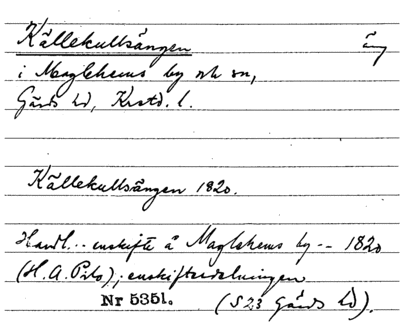 Källekullsängen äng
i Maglehems by och sn,
Gärds hd, Kristd. l.
Källekullsängen 1820.
Handl... enskifte å Maglehems by -- 1820
(H. A. ); enskiftesdelningen
Nr 5351. (S 23 Gärds hd).